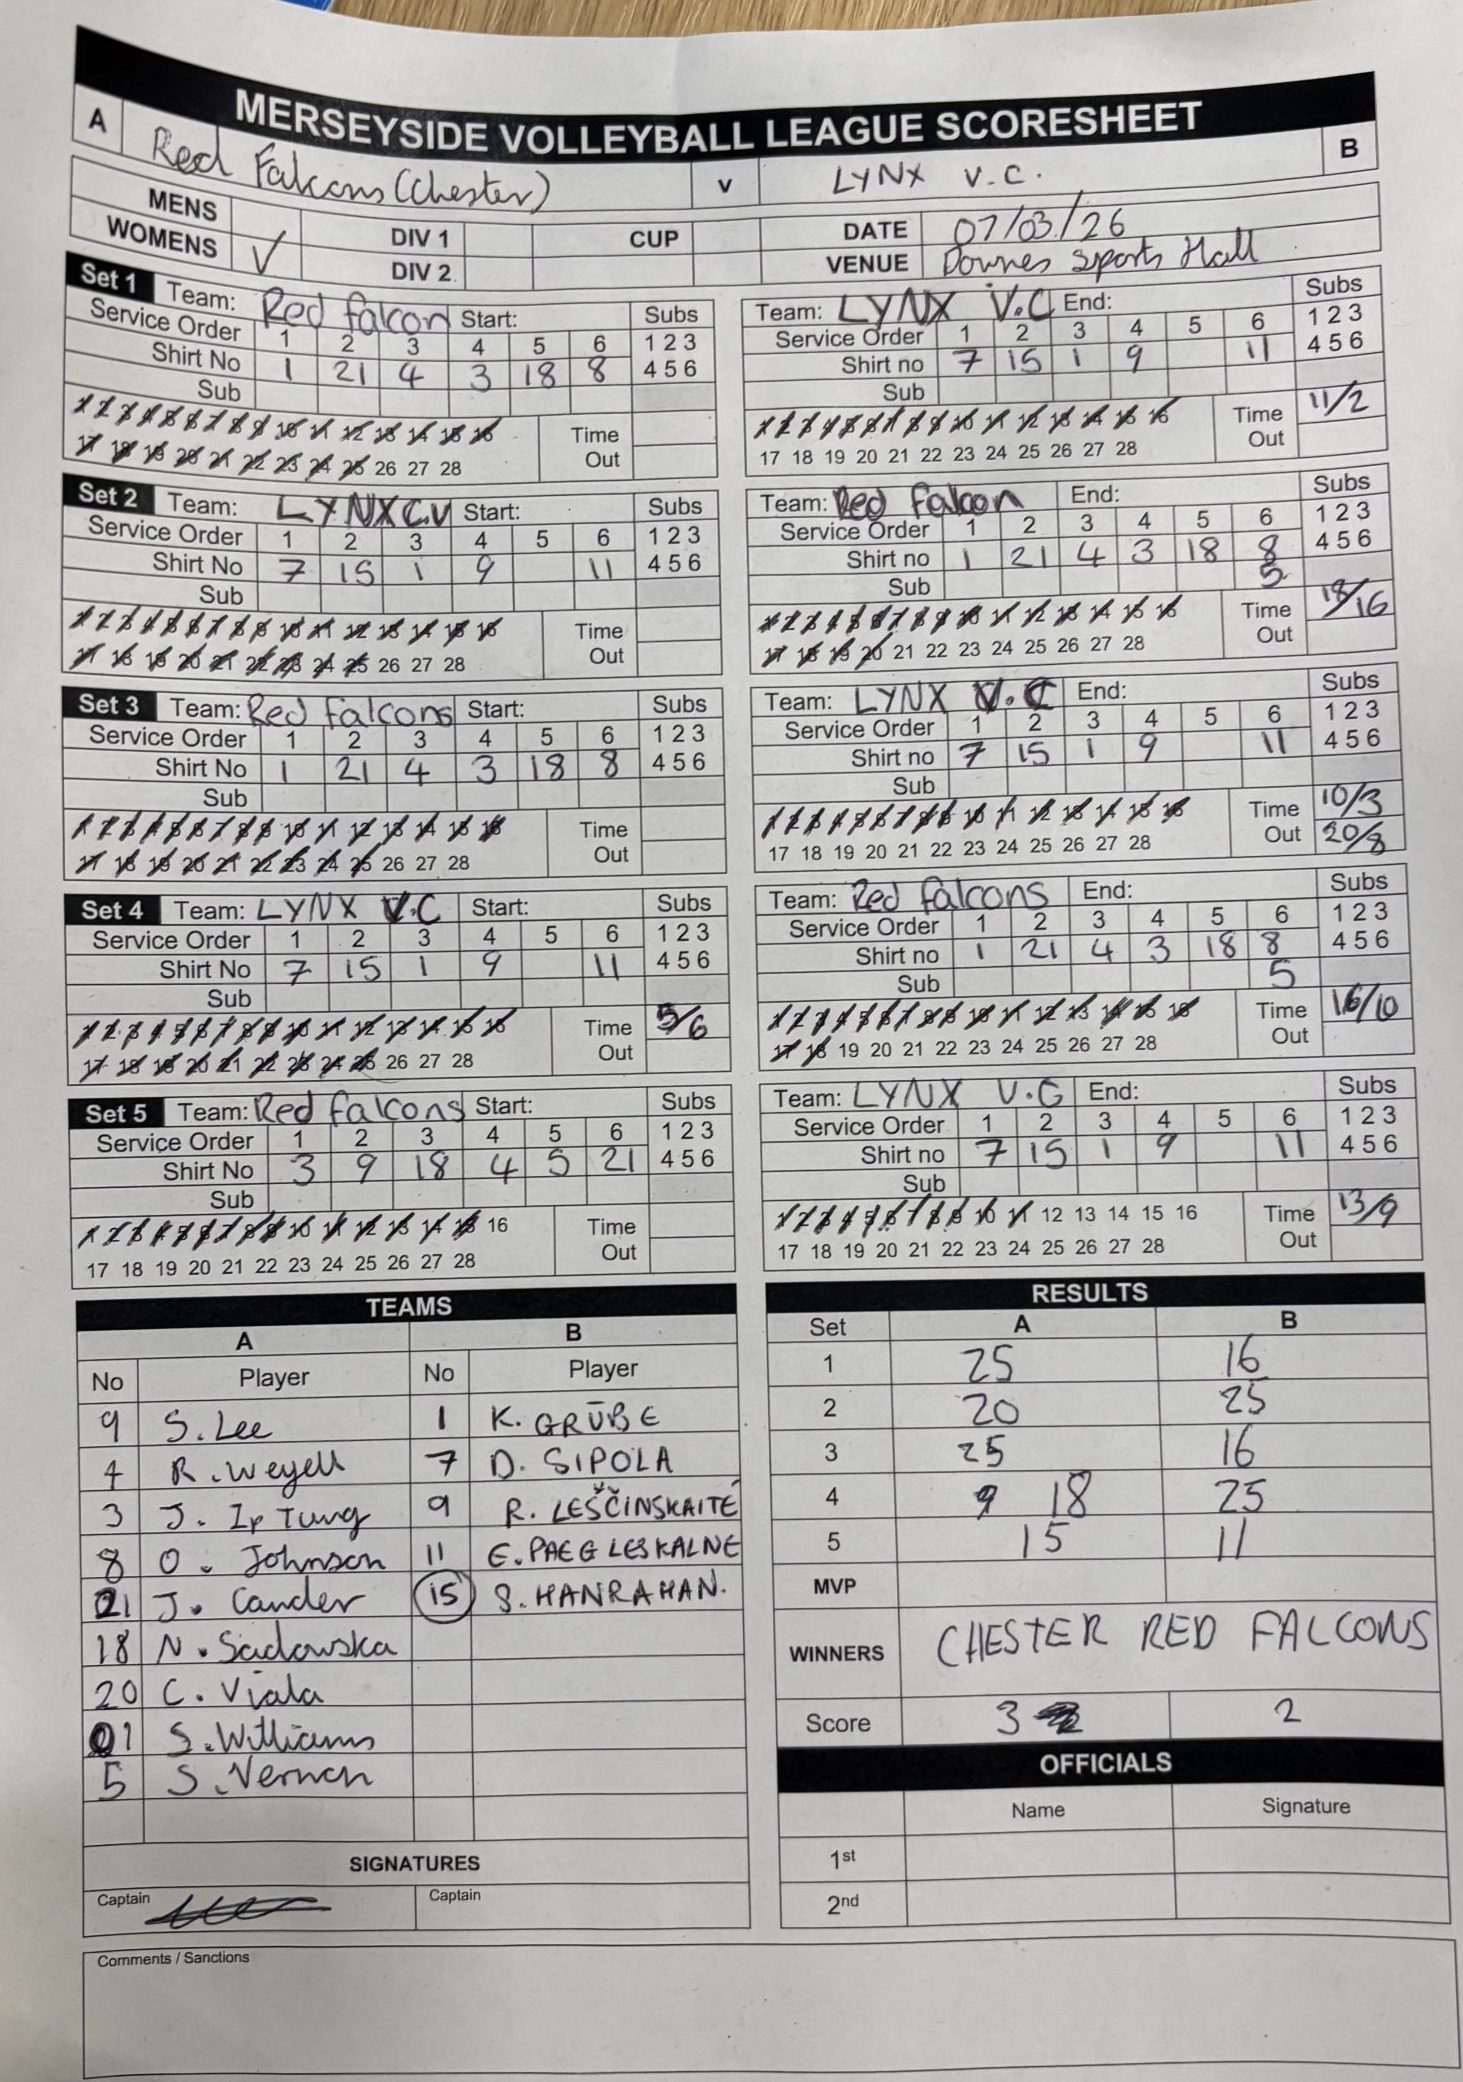 MERSEYSIDE VOLLEYBALL LEAGUE SCORESHEET
A Red Falcons (Chester) v LYNX V.C. B
MENS DIV 1 CUP DATE 07/03/26
WOMENS ✓ DIV 2 VENUE Downes Sports Hall
Set 1 Team: Red falcon Start: Subs
Service Order 1 2 3 4 5 6 1 2 3
Shirt No 1 21 4 3 18 8 4 5 6
Sub
1 2 3 4 5 6 7 8 9 10 11 12 13 14 15 16 Time
17 18 19 20 21 22 23 24 25 26 27 28 Out
Team: LYNX V.C End: Subs
Service Order 1 2 3 4 5 6 1 2 3
Shirt no 7 15 1 9 11 4 5 6
Sub
1 2 3 4 5 6 7 8 9 10 11 12 13 14 15 16 Time 11/2
17 18 19 20 21 22 23 24 25 26 27 28 Out
Set 2 Team: LYNX C.V Start: Subs
Service Order 1 2 3 4 5 6 1 2 3
Shirt No 7 15 1 9 11 4 5 6
Sub
1 2 3 4 5 6 7 8 9 10 11 12 13 14 15 16 Time
17 18 19 20 21 22 23 24 25 26 27 28 Out
Team: Red falcon End: Subs
Service Order 1 2 3 4 5 6 1 2 3
Shirt no 1 21 4 3 18 8 4 5 6
Sub 5
1 2 3 4 5 6 7 8 9 10 11 12 13 14 15 16 Time 18/16
17 18 19 20 21 22 23 24 25 26 27 28 Out
Set 3 Team: Red falcons Start: Subs
Service Order 1 2 3 4 5 6 1 2 3
Shirt No 1 21 4 3 18 8 4 5 6
Sub
1 2 3 4 5 6 7 8 9 10 11 12 13 14 15 16 Time
17 18 19 20 21 22 23 24 25 26 27 28 Out
Team: LYNX V.C End: Subs
Service Order 1 2 3 4 5 6 1 2 3
Shirt no 7 15 1 9 11 4 5 6
Sub
1 2 3 4 5 6 7 8 9 10 11 12 13 14 15 16 Time 10/3
17 18 19 20 21 22 23 24 25 26 27 28 Out 20/8
Set 4 Team: LYNX V.C Start: Subs
Service Order 1 2 3 4 5 6 1 2 3
Shirt No 7 15 1 9 11 4 5 6
Sub
1 2 3 4 5 6 7 8 9 10 11 12 13 14 15 16 Time 5/6
17 18 19 20 21 22 23 24 25 26 27 28 Out
Team: Red falcons End: Subs
Service Order 1 2 3 4 5 6 1 2 3
Shirt no 1 21 4 3 18 8 4 5 6
Sub 5
1 2 3 4 5 6 7 8 9 10 11 12 13 14 15 16 Time 16/10
17 18 19 20 21 22 23 24 25 26 27 28 Out
Set 5 Team: Red falcons Start: Subs
Service Order 1 2 3 4 5 6 1 2 3
Shirt No 3 9 18 4 5 21 4 5 6
Sub
1 2 3 4 5 6 7 8 9 10 11 12 13 14 15 16 Time
17 18 19 20 21 22 23 24 25 26 27 28 Out
Team: LYNX V.C End: Subs
Service Order 1 2 3 4 5 6 1 2 3
Shirt no 7 15 1 9 11 4 5 6
Sub
1 2 3 4 5 6 7 8 9 10 11 12 13 14 15 16 Time 13/9
17 18 19 20 21 22 23 24 25 26 27 28 Out
TEAMS
A B
No Player No Player
9 S. Lee 1 K. GRŪBE
4 R. Weyell 7 D. SIPOLA
3 J. Ip Tung 9 R. LEŠČINSKAITĖ
8 O. Johnson 11 E. PAEGLESKALNE
21 J. Cander 15 S. HANRAHAN.
18 N. Sadowska
20 C. Viala
01 S. Williams
5 S. Vernon
SIGNATURES
Captain Captain
RESULTS
Set A B
1 25 16
2 20 25
3 25 16
4 9 18 25
5 15 11
MVP
WINNERS CHESTER RED FALCONS
Score 3 2
OFFICIALS
Name Signature
1st
2nd
Comments / Sanctions